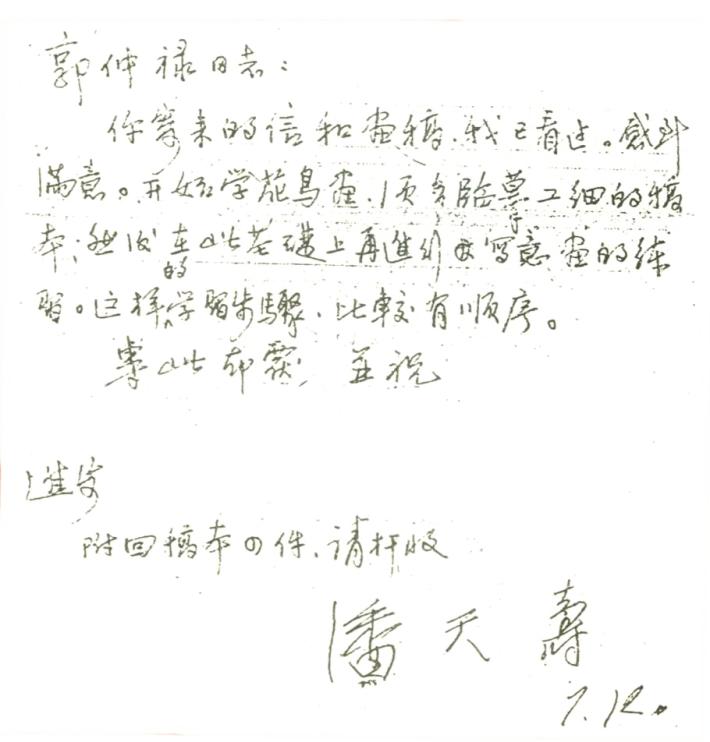 郭仲禄同志：
你寄来的信和画稿，我已看过。感到
满意。开始学花鸟画，须多临摹工细的稿
本；然后在此基礎上再進行写意画的练
習。这样的学習步驟，比較有順序。
專此即覆，並祝
進安
附回稿本四件，请检收
潘天壽
7.12.